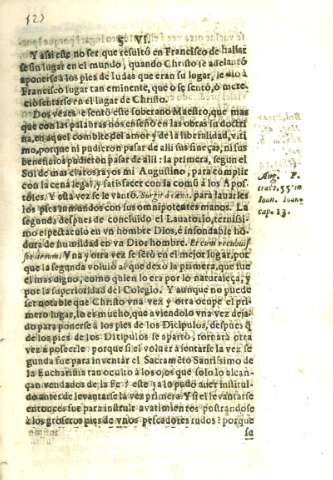 §. VI.
Y assi este no ser que resultó en Francisco de hallar
se sin lugar en el mundo, quando Christo se adelantó
a ponerse a los pies de Iudas que eran su lugar, le dió a
Francisco lugar tan eminente, que ò se sentó, ò mere-
ció sentarse en el lugar de Christo.
Dos vezes se sentó este soberano Maestro, que mas
que con las palabras nos enseñó en las obras su doctri
na, en aquel combite del amor y de la liberalidad, vlti
mo, porque ni pudieron pasar de alli sus finezas, ni sus
beneficios pudieron pasar de alli: la primera, segun el
Sol de mas claros rayos mi Augustino, para cumplir
con la cena legal, y satisfacer con la comũ a los Apos
toles. Y esta vez se levantó. Surgit à cœna, para lavarles
los pies inmundos con sus omnipotentes manos. La
segunda despues de concluido el Lauatorio, ternissi-
mo espectaculo en vn hombre Dios, è insondable hõ
dura de humildad en vn Dios hombre. Et cum recubuis
set iterum. Vna y otra vez se sentó en el mejor lugar, por
que la segunda volvió a el que dexó la primera, que fue
el mas digno, como quien lo era por lo naturaleza, y
por la superioridad del Colegio. Y aunque no puede
ser notable que Christo vna vez y otra ocupe el pri-
mero lugar, lo es mucho, que aviendolo vna vez deja-
do para ponerse à los pies de los Dicipulos, despues q̃
de los pies de los Dicipulos se apartó, tornara otra
vez a poserle: porque si el volver a sentarse la vez se
gunda fue para inventar el Sacramẽto Santissimo de
la Eucharistia tan oculto à los ojos que solo lo alcan-
çan vendados de la Fe? este ya lo pudo auer institui-
do antes de levantarse la vez primera. Y si el levantarse
entonces fue para instruir avatimientos postrandose
à los groseros pies de vnos pescadores rudos? porque
se
Aug. P.
tract. 55. in
Ioan. Ioan.
cap. 13.